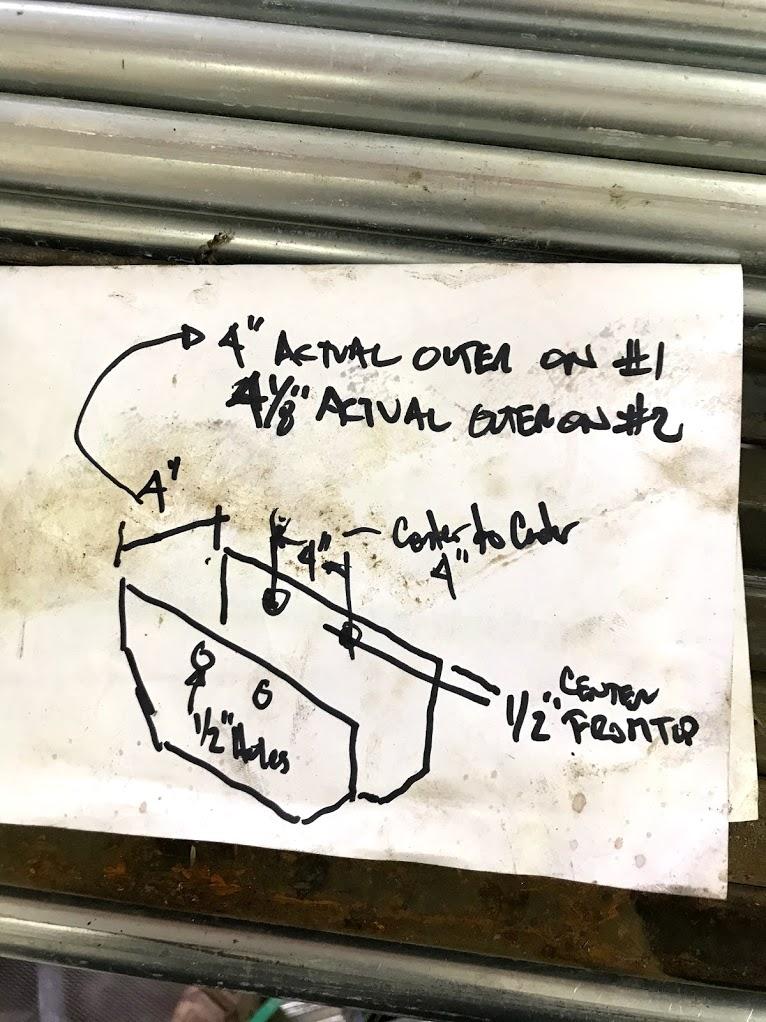 4" ACTUAL OUTER ON #1
4 1/8" ACTUAL OUTER ON #2
4"
4" - Center to Center
4"
1/2" CENTER
FROM TOP
1/2" Holes